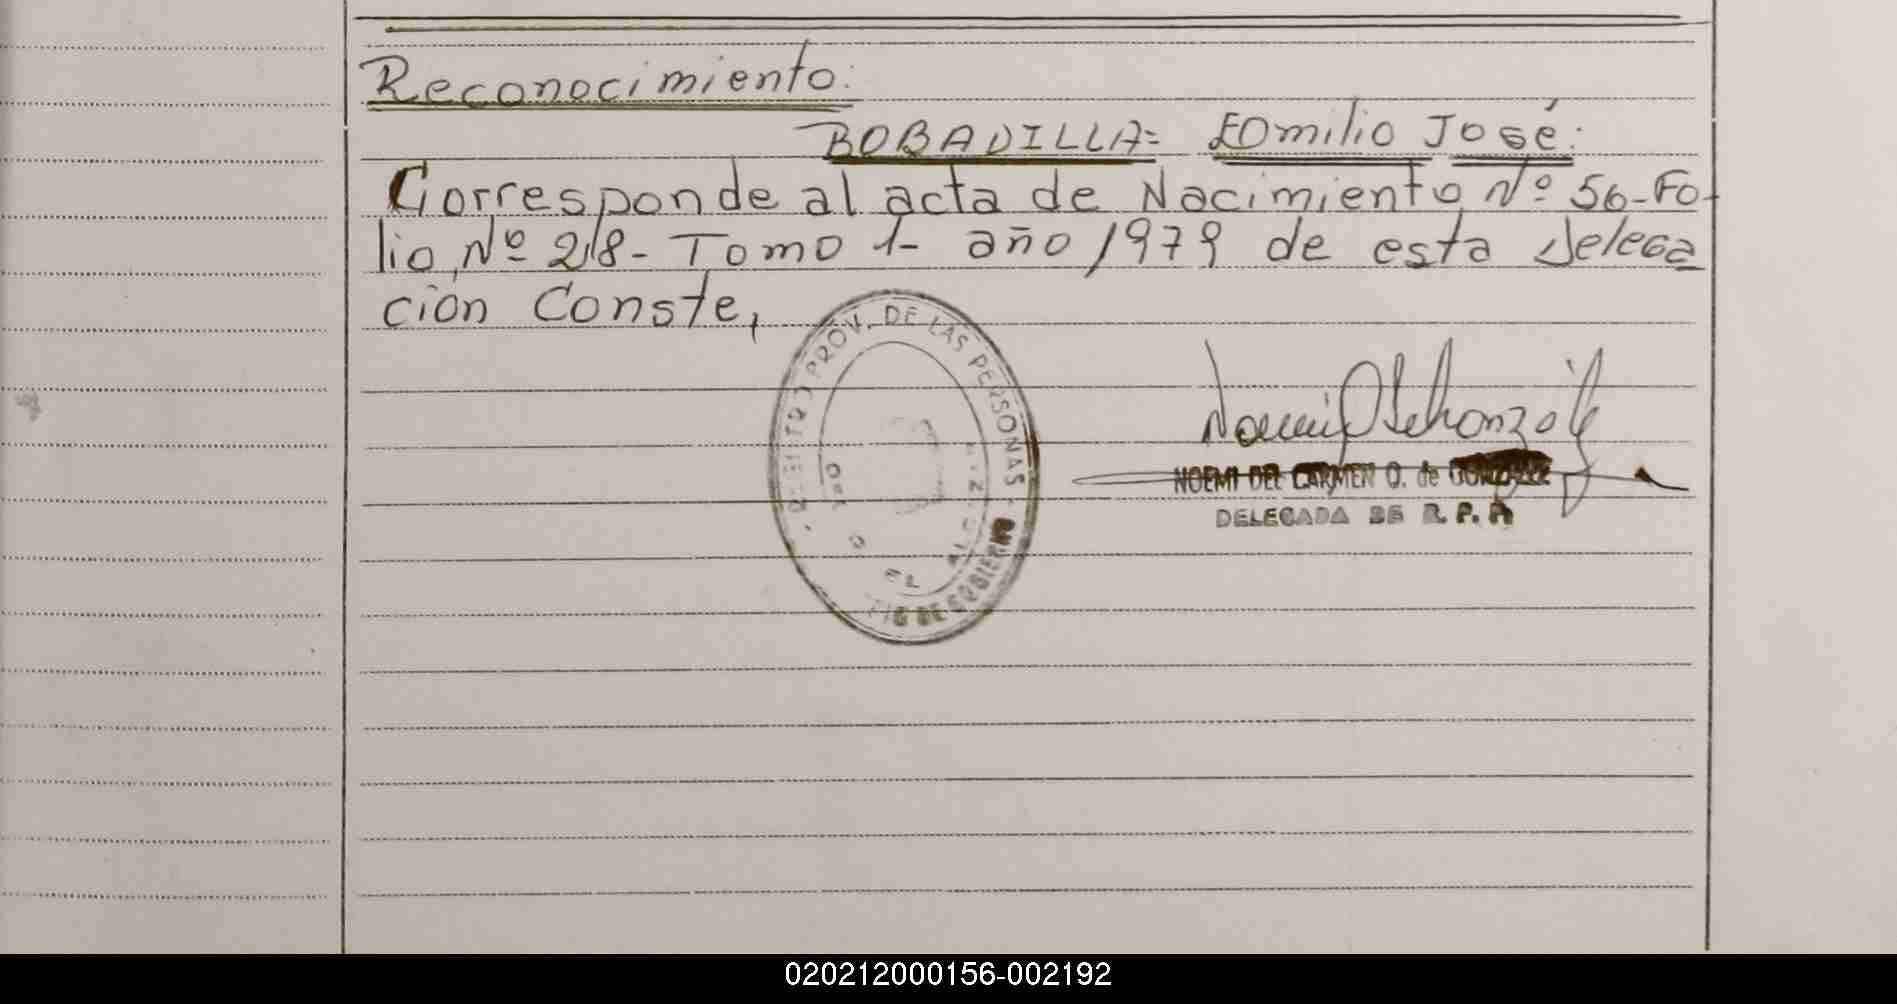 Reconocimiento:
BOBADILLA= EDmilio José:
Corresponde al acta de Nacimiento Nº 56-Fo-
lio, Nº 28- Tomo 1- año 1979 de esta Delega
ción Conste,
PROV. DE LAS PERSONAS
DE GOBIERNO
NOEMI DEL CARMEN O. de GONZALEZ
DELEGADA DE R. P. P.
020212000156-002192